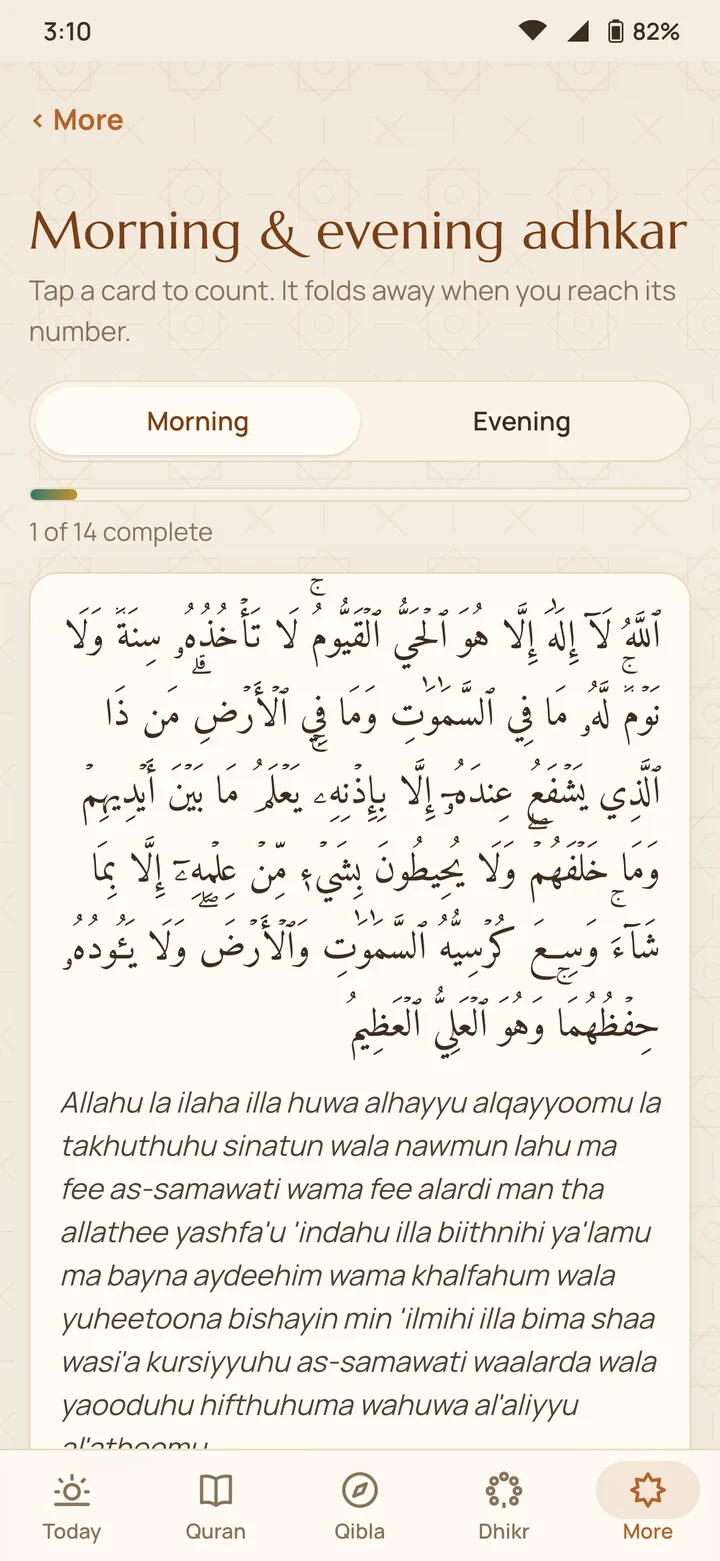 3:10
82%
‹ More
Morning & evening adhkar
Tap a card to count. It folds away when you reach its
number.
Morning
Evening
1 of 14 complete
ٱللَّهُ لَآ إِلَٰهَ إِلَّا هُوَ ٱلْحَيُّ ٱلْقَيُّومُ ۚ لَا تَأْخُذُهُۥ سِنَةٌۭ وَلَا
نَوْمٌۭ ۚ لَّهُۥ مَا فِي ٱلسَّمَٰوَٰتِ وَمَا فِي ٱلْأَرْضِ ۗ مَن ذَا
ٱلَّذِي يَشْفَعُ عِندَهُۥٓ إِلَّا بِإِذْنِهِۦ ۚ يَعْلَمُ مَا بَيْنَ أَيْدِيهِمْ
وَمَا خَلْفَهُمْ ۖ وَلَا يُحِيطُونَ بِشَيْءٍۢ مِّنْ عِلْمِهِۦٓ إِلَّا بِمَا
شَآءَ ۚ وَسِعَ كُرْسِيُّهُ ٱلسَّمَٰوَٰتِ وَٱلْأَرْضَ ۖ وَلَا يَـُٔودُهُۥ
حِفْظُهُمَا ۚ وَهُوَ ٱلْعَلِيُّ ٱلْعَظِيمُ
Allahu la ilaha illa huwa alhayyu alqayyoomu la
takhuthuhu sinatun wala nawmun lahu ma
fee as-samawati wama fee alardi man tha
allathee yashfa'u 'indahu illa biithnihi ya'lamu
ma bayna aydeehim wama khalfahum wala
yuheetoona bishayin min 'ilmihi illa bima shaa
wasi'a kursiyyuhu as-samawati waalarda wala
yaooduhu hifthuhuma wahuwa al'aliyyu
al'atheemu
Today
Quran
Qibla
Dhikr
More